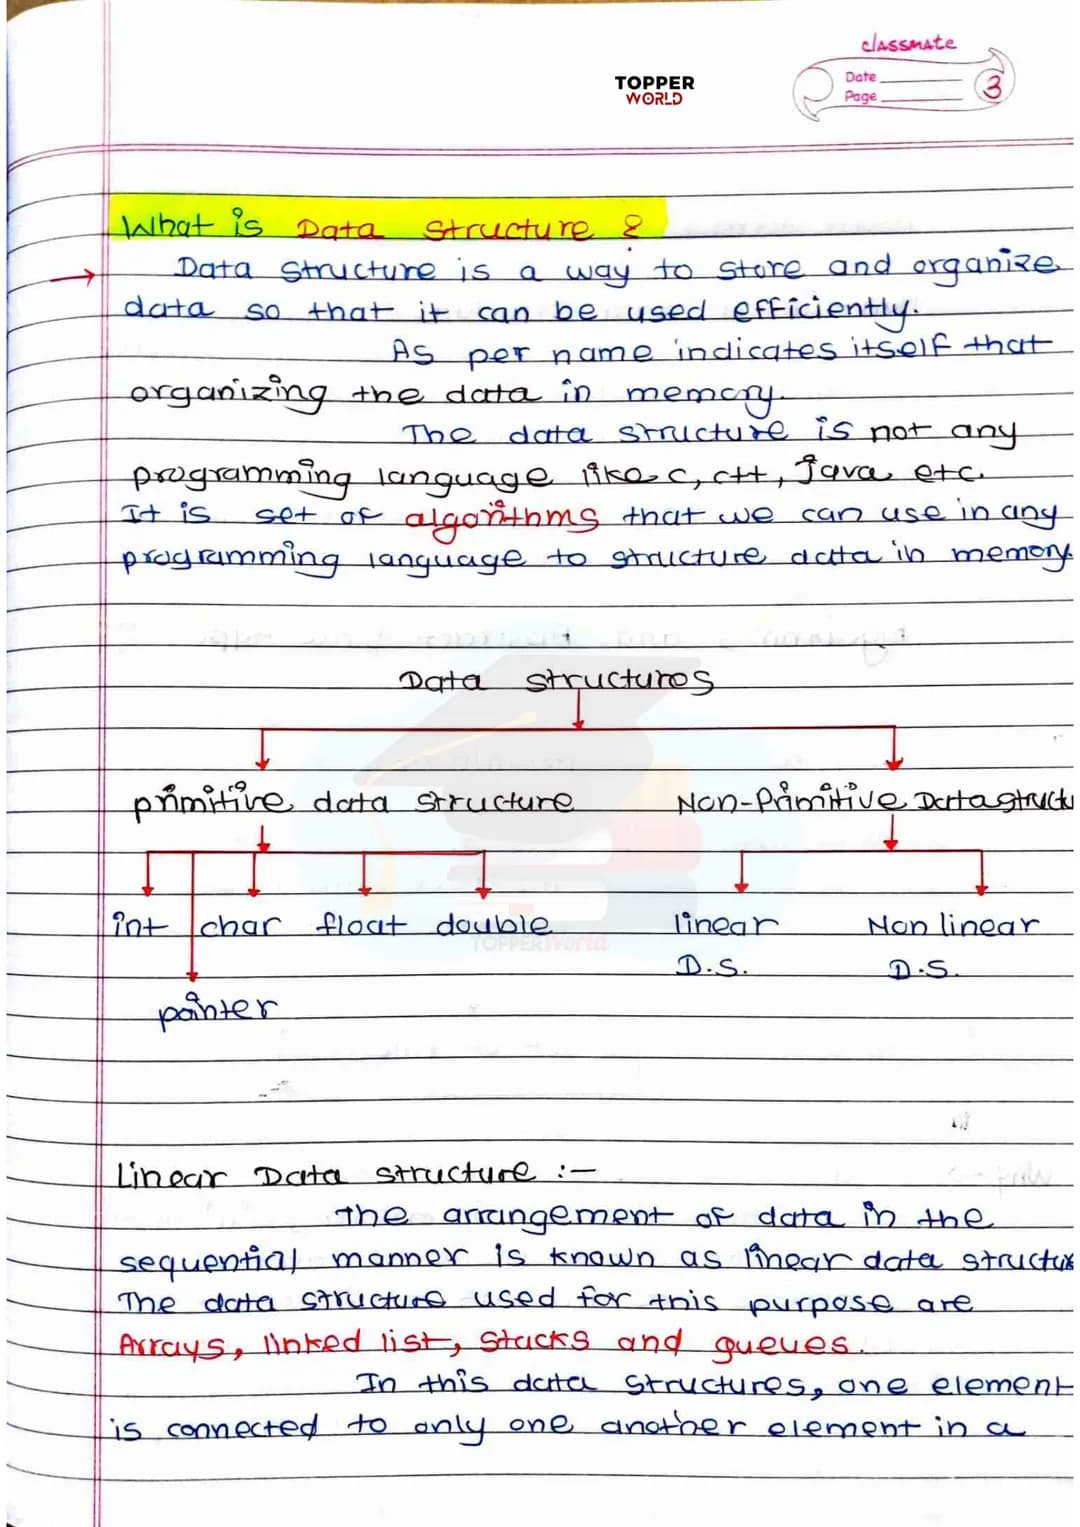 classmate
TOPPER
WORLD
Date
Page
3
What is Data Structure ?
Data structure is a way to store and organize
data so that it can be used efficiently.
As per name indicates itself that
organizing the data in memory.
The data structure is not any
programming language like C, C++, Java etc.
It is set of algorithms that we can use in any
programming language to structure data in memory.
Data structures
primitive data structure Non-Primitive Datastructu
int char float double linear Non linear
D.S. D.S.
pointer
TOPPERWorld
Linear Data structure :-
The arrangement of data in the
sequential manner is known as linear data structure
The data structure used for this purpose are
Arrays, linked list, Stacks and queues.
In this data structures, one element
is connected to only one another element in a